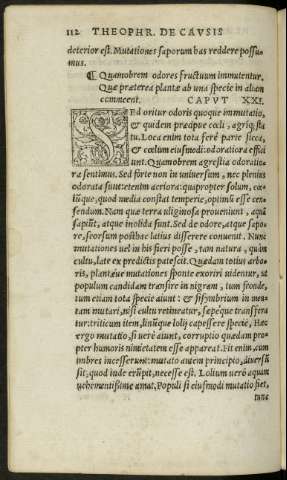 112 THEOPHR. DE CAVSIS
deterior est. Mutationes saporum has reddere possu-
mus.
¶ Quamobrem odores fructuum immutentur.
Quæ præterea plantæ ab una specie in aliam
commeent. CAPVT XXI.
SEd oritur odoris quoque immutatio,
& quidem præcipue cœli, agriq; sta
tu. Loca enim tota ferè parte sicca,
& cœlum eiusmodi: odoratiora effici
unt. Quamobrem agrestia odoratio-
ra sentimus. Sed forte non in universum, nec plenius
odorata sunt: etenim acriora: quapropter solum, cœ-
lūque, quod media constat temperie, optimū esse cen-
sendum. Nam quæ terra uliginosa proueniunt, aquā
sapiūt, atque insipida sunt. Sed de odore, atque sapo-
re, seorsum posthac latius disserere conuenit. Nunc
mutationes uel in his fieri posse, tam natura, quàm
cultu, late ex prædictis patescit. Quædam totius arbo-
ris, plantæue mutationes sponte exoriri uidentur, ut
populum candidam transire in nigram, tum fronde,
tum etiam tota specie aiunt: & sisymbrium in men-
tam mutari, nisi cultu retineatur, sæpéque transfera
tur: triticum item, linūque lolij capessere specie, Hæc
ergo mutatio, si uerè aiunt, corruptio quædam pro-
pter humoris nimietatem esse appareat. Fit enim, cum
imbres incesserunt: mutato autem principio, diuersū
sit, quod inde erūpit, necesse est. Lolium uerò aquam
uehementissime amat. Populi si eiusmodi mutatio fiet,